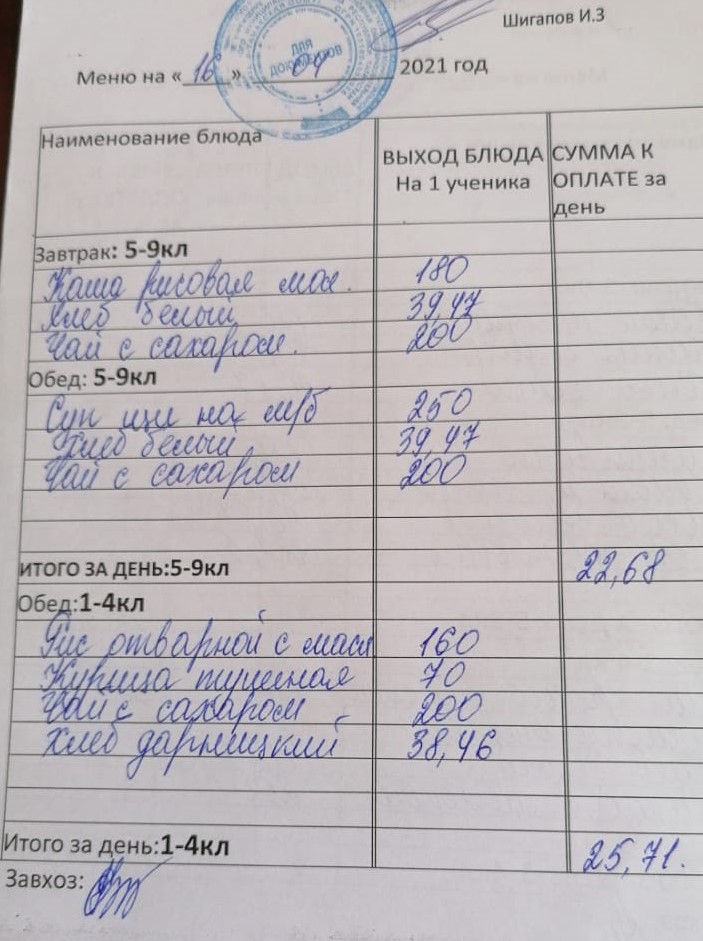 Шигапов И.З
Меню на «16» 2021 год
ДЛЯ ДОКУМЕНТОВ
Наименование блюда ВЫХОД БЛЮДА На 1 ученика СУММА К ОПЛАТЕ за день
Завтрак: 5-9кл
Каша рисовая мол. 180
Хлеб белый 39,47
Чай с сахаром 200
Обед: 5-9кл
Суп щи на м/б 250
Хлеб белый 39,47
Чай с сахаром 200
ИТОГО ЗА ДЕНЬ:5-9кл 22,68
Обед:1-4кл
Рис отварной с масл 160
Курица тушеная 70
Чай с сахаром 200
Хлеб дарницкий 38,46
Итого за день:1-4кл 25,71.
Завхоз: